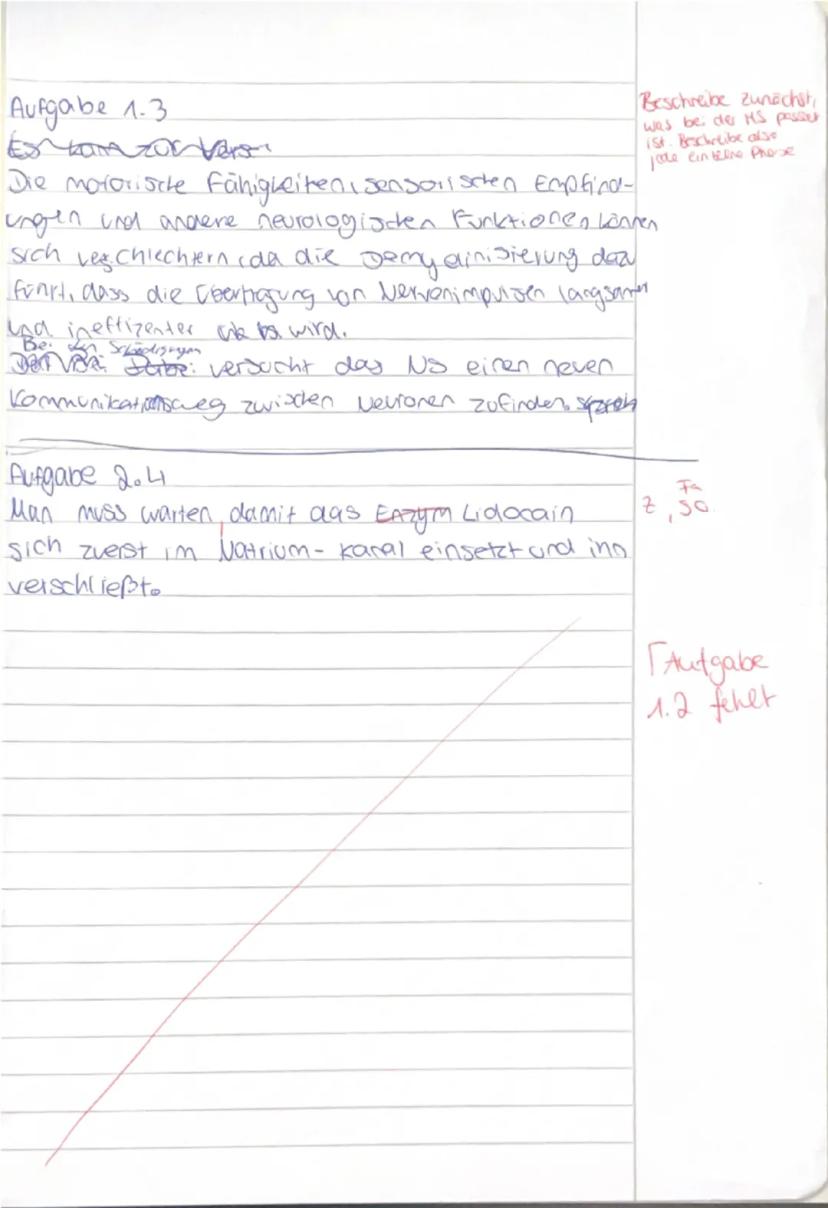 Aufgabe 1.3
Es kam zur Verse
Die motorische Fähigkeiten, sensorischen Empfind-
ungen und andere neurologischen Funktionen können
sich verschlechtern, da die Demyelinisierung dazu
führt, dass die Übertragung von Nervenimpulsen langsamer
und ineffizenter wird.
Bei den Schädigungen
versucht das NS einen neuen
Kommunikationsweg zwischen Neuronen zufinden.
Aufgabe 2.4
Man muss warten, damit das Enzym Lidocain
sich zuerst im Natrium-kanal einsetzt und ihn
verschließt.
Beschreibe zunächst,
was bei der MS passiert
ist. Beschreibe also
jede einzelne Phase
Fa
Z, SO
Γ Aufgabe
1.2 fehlt